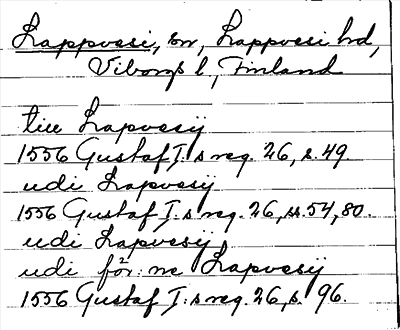 Lappvesi, sn, Lappvesi hd,
Viborgs l, Finland
till Lapvesij
1556 Gustaf I:s reg. 26, s. 49.
udi Lapvesij
1556 Gustaf I:s reg. 26, ss. 54, 80.
udi Lapvesij
udi för:ne Lapvesij
1556 Gustaf I:s reg. 26, s. 96.